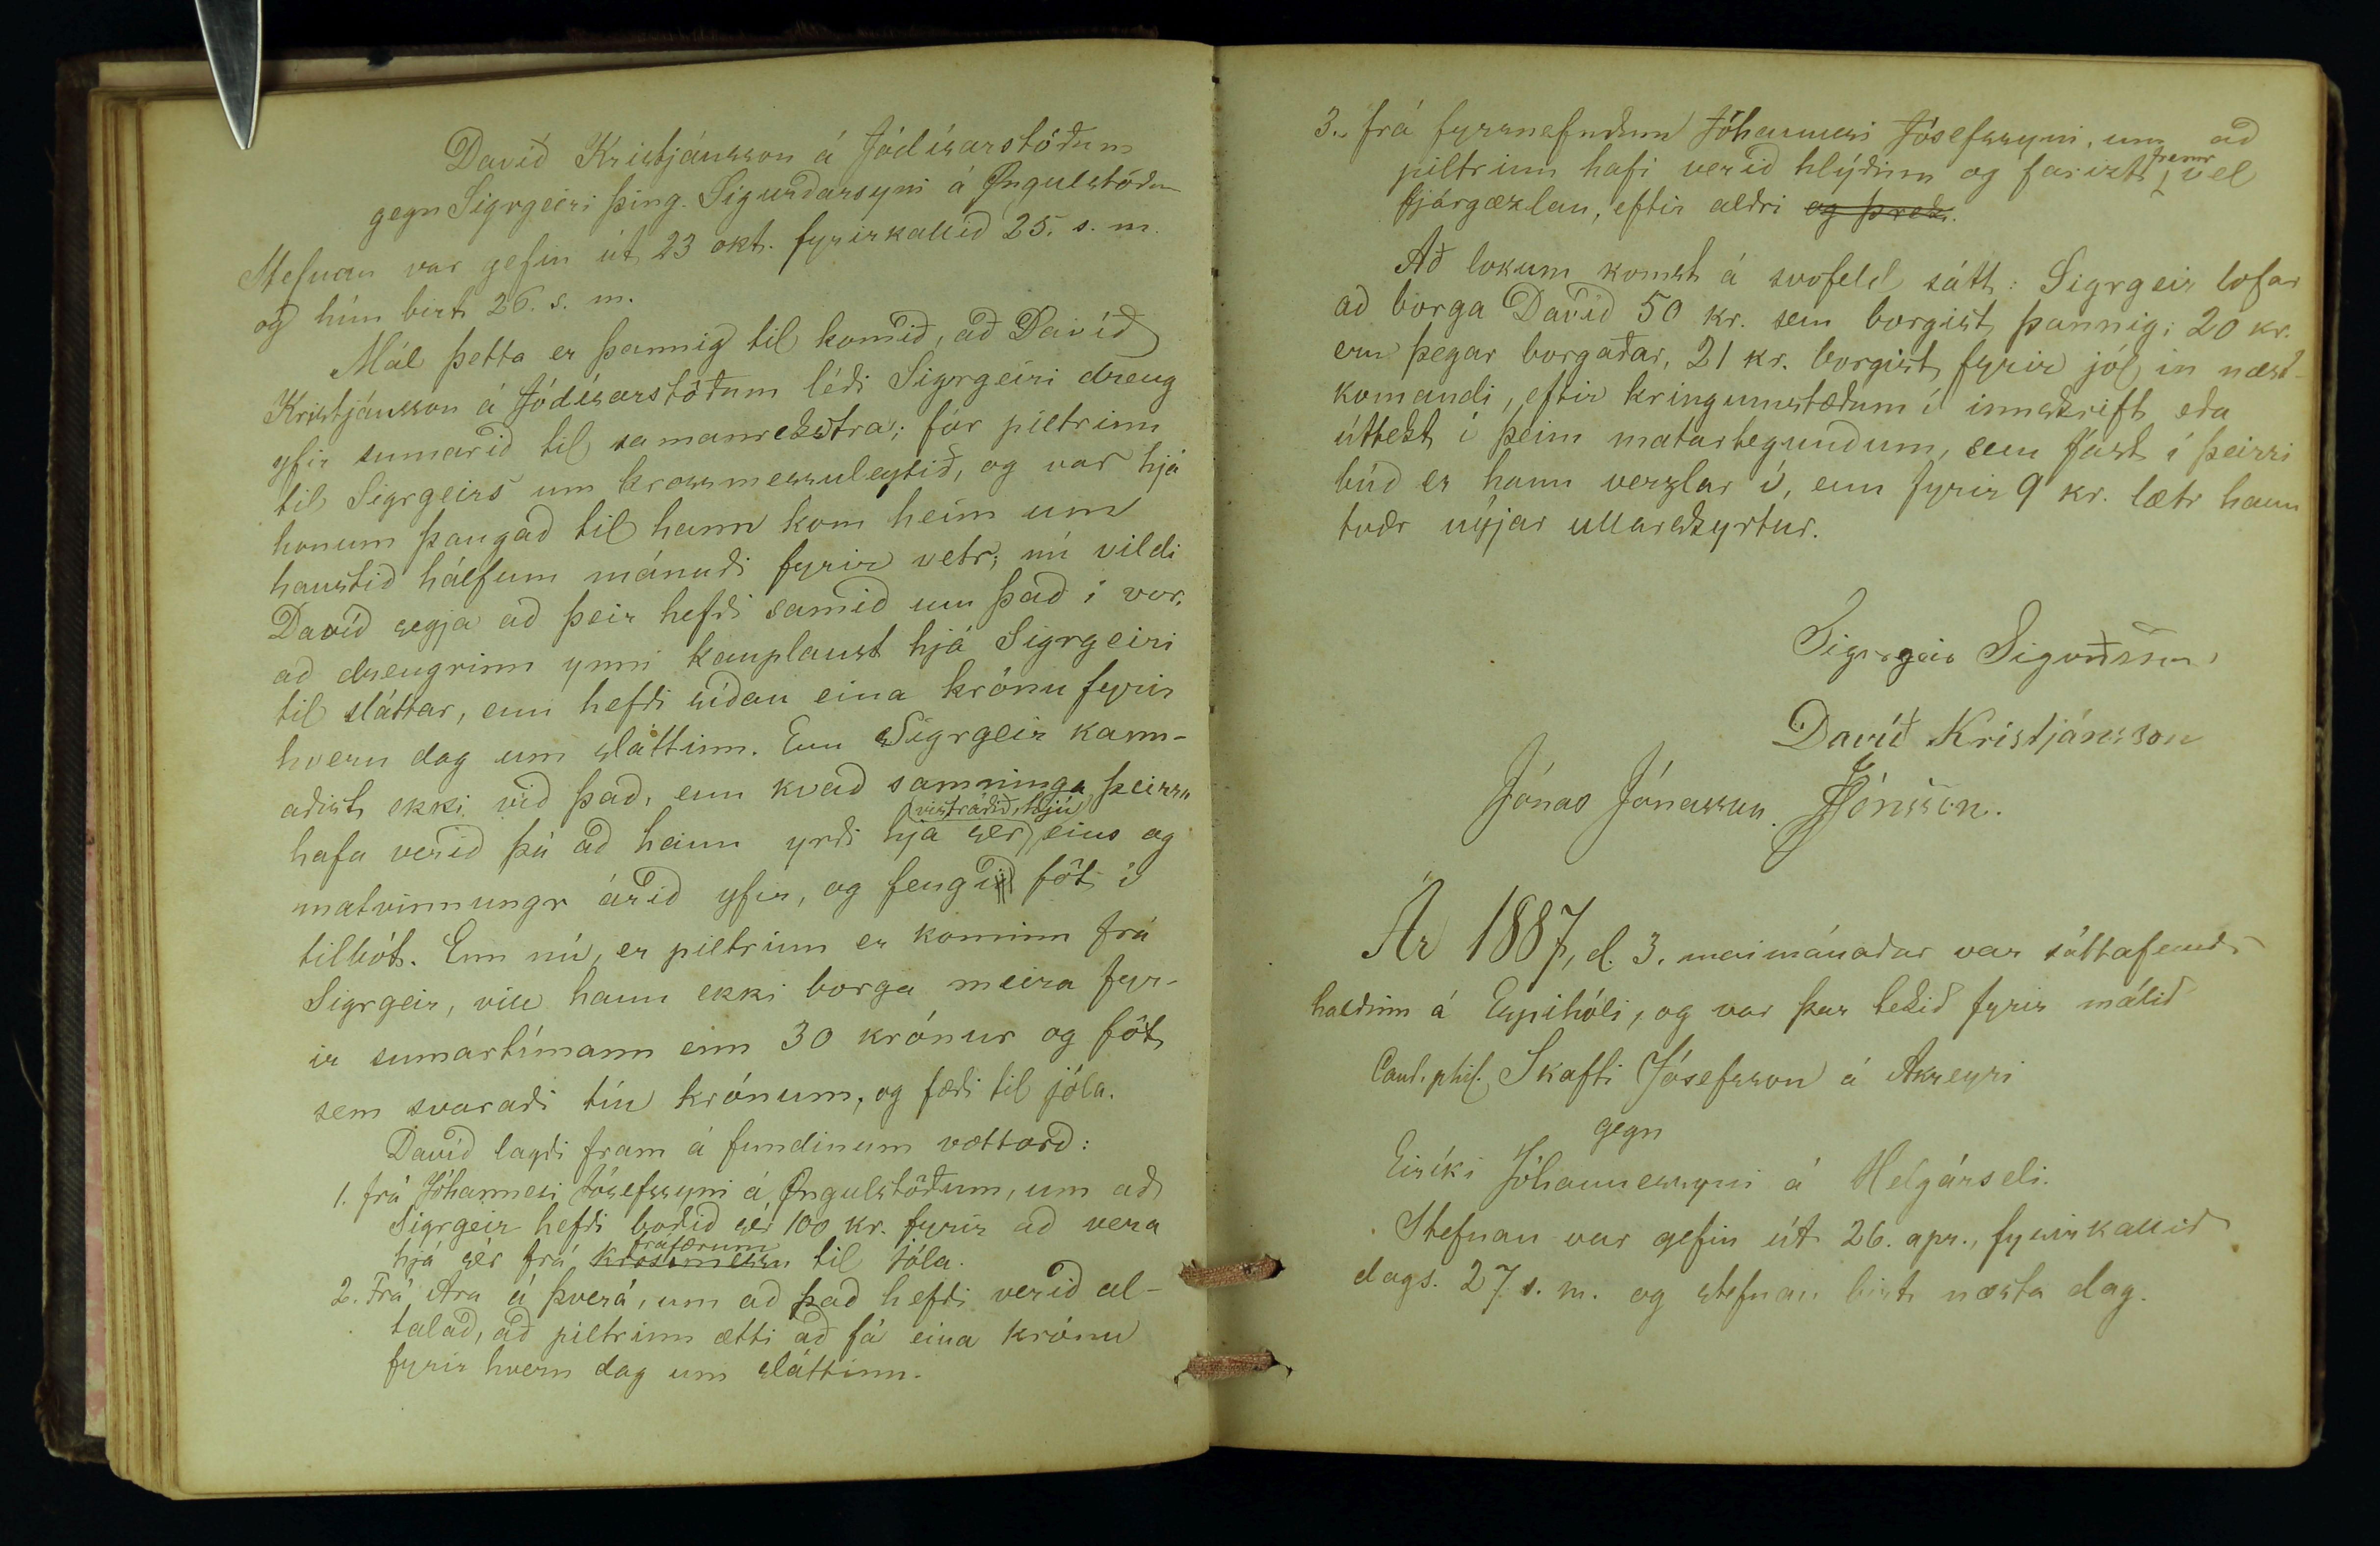 Davið Kristjánsson á Jódísarstöðum
gegn Sigrgeiri þing. Sigurdarsyni á Øngulstöðum
Stefnan var gefin út 23 okt. fyrirkallið 25. s. m.
og hún birt 26. s. m.
Mál þetta er þannig til komið, að Davíð
Kristjánsson á Jódísarstöðum léði Sigrgeiri dreng
yfir sumarið til samanrekstra; fór piltrinn
til Sigrgeirs um krossmessuleytið, og var hjá
honum þangað til hann kom heim um
haustið hálfum mánuði fyrir vetr; nú vildi
Davíð segja að þeir hefði samið um það í vor,
að drengrinn ynni kauplaust hjá Sigrgeiri
til sláttar, enn hefði síðan eina krónu fyrir
hvern dag um sláttinn. Enn Sigrgeir kann-
aðist ekki við það, enn kvað samninga þeirra
hafa verið þá að hann yrði hjá sér (vistráðið hjú) eins og
matvinnungr árið yfir, og fengi föt í
tilbót. Enn nú, er piltrinn er kominn frá
Sigrgeir, vill hann ekki borga meira fyr-
ir sumartímann enn 30 krónur og föt
sem svaraði tíu krónum, og fæði til jóla.
Davíð lagði fram á fundinum vottorð:
1. frá Jóhannesi Jósefssyni á Øngulstöðum, um að
Sigrgeir hefði boðið sér 100 kr. fyrir að vera
hjá sér frá krossmessu fráfærum til jóla.
2. Frá Ara á Þverá, um að það hefði verið al-
talað, að piltrinn ætti að fá eina krónu
fyrir hvern dag um sláttinn.
3. frá fyrrnefndum Jóhannesi Jósefssyni, um að
piltrinn hafi verið hlýðinn og farizt fremr vel
fjárgæzlan, eftir aldri og þreki.
Að lokum komst á svofeld sátt: Sigrgeir lofar
að borga Davíð 50 kr. sem borgist þannig: 20 kr.
eru þegar borgaðar, 21 kr. borgist fyrir jól in næst-
komandi, eftir kringumstæðum í innskrift eða
úttekt í þeim matartegundum, sem fást í þeirri
búð er hann verzlar í, enn fyrir 9 kr. lætr hann
tvær nýjar ullarskyrtur.
Sigrgeir Sigurðsson
Davíð Kristjánsson
Jónas Jónasson. JJónsson.
Ár 1887, d. 3. maímánaðar var sáttafundr
haldinn á Espihóli, og var þar tekið fyrir málið
Cand. phil. Skafti Jósefsson á Akreyri
gegn
Eiríki Jóhannessyni á Helgárseli.
Stefnan var gefin út 26. apr., fyrirkallið
dags. 27. s. m. og stefnan birt næsta dag.